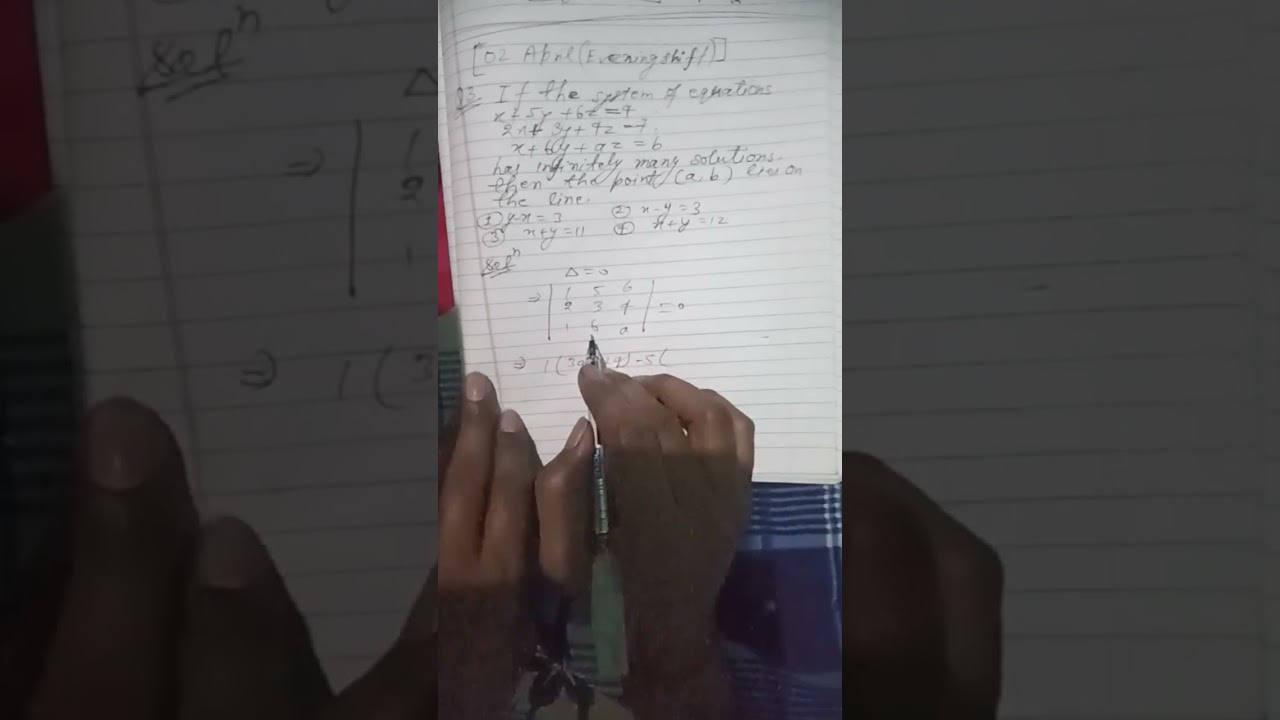 [02 April (Evening shift)]
Q3 If the system of equations
x+5y+6z=4
2x+3y+4z=7
x+6y+az=b
has infinitely many solutions.
then the point (a,b) lies on
the line.
① y-x=3 ② x-y=3
③ x+y=11 ④ x+y=12
Solⁿ
Δ=0
⇒ | 1 5 6
2 3 4 | =0
1 6 a
⇒ 1(3a 4)-5(